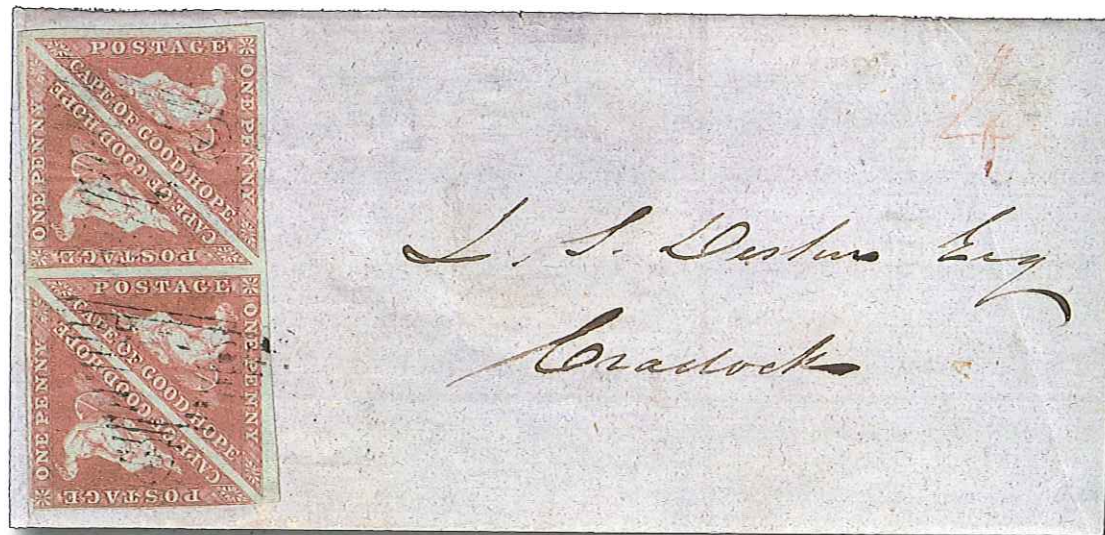 POSTAGE
ONE PENNY
CAPE OF GOOD HOPE
CAPE OF GOOD HOPE
ONE PENNY
POSTAGE
POSTAGE
ONE PENNY
CAPE OF GOOD HOPE
CAPE OF GOOD HOPE
ONE PENNY
POSTAGE
4
L. S. Esq
Cradock